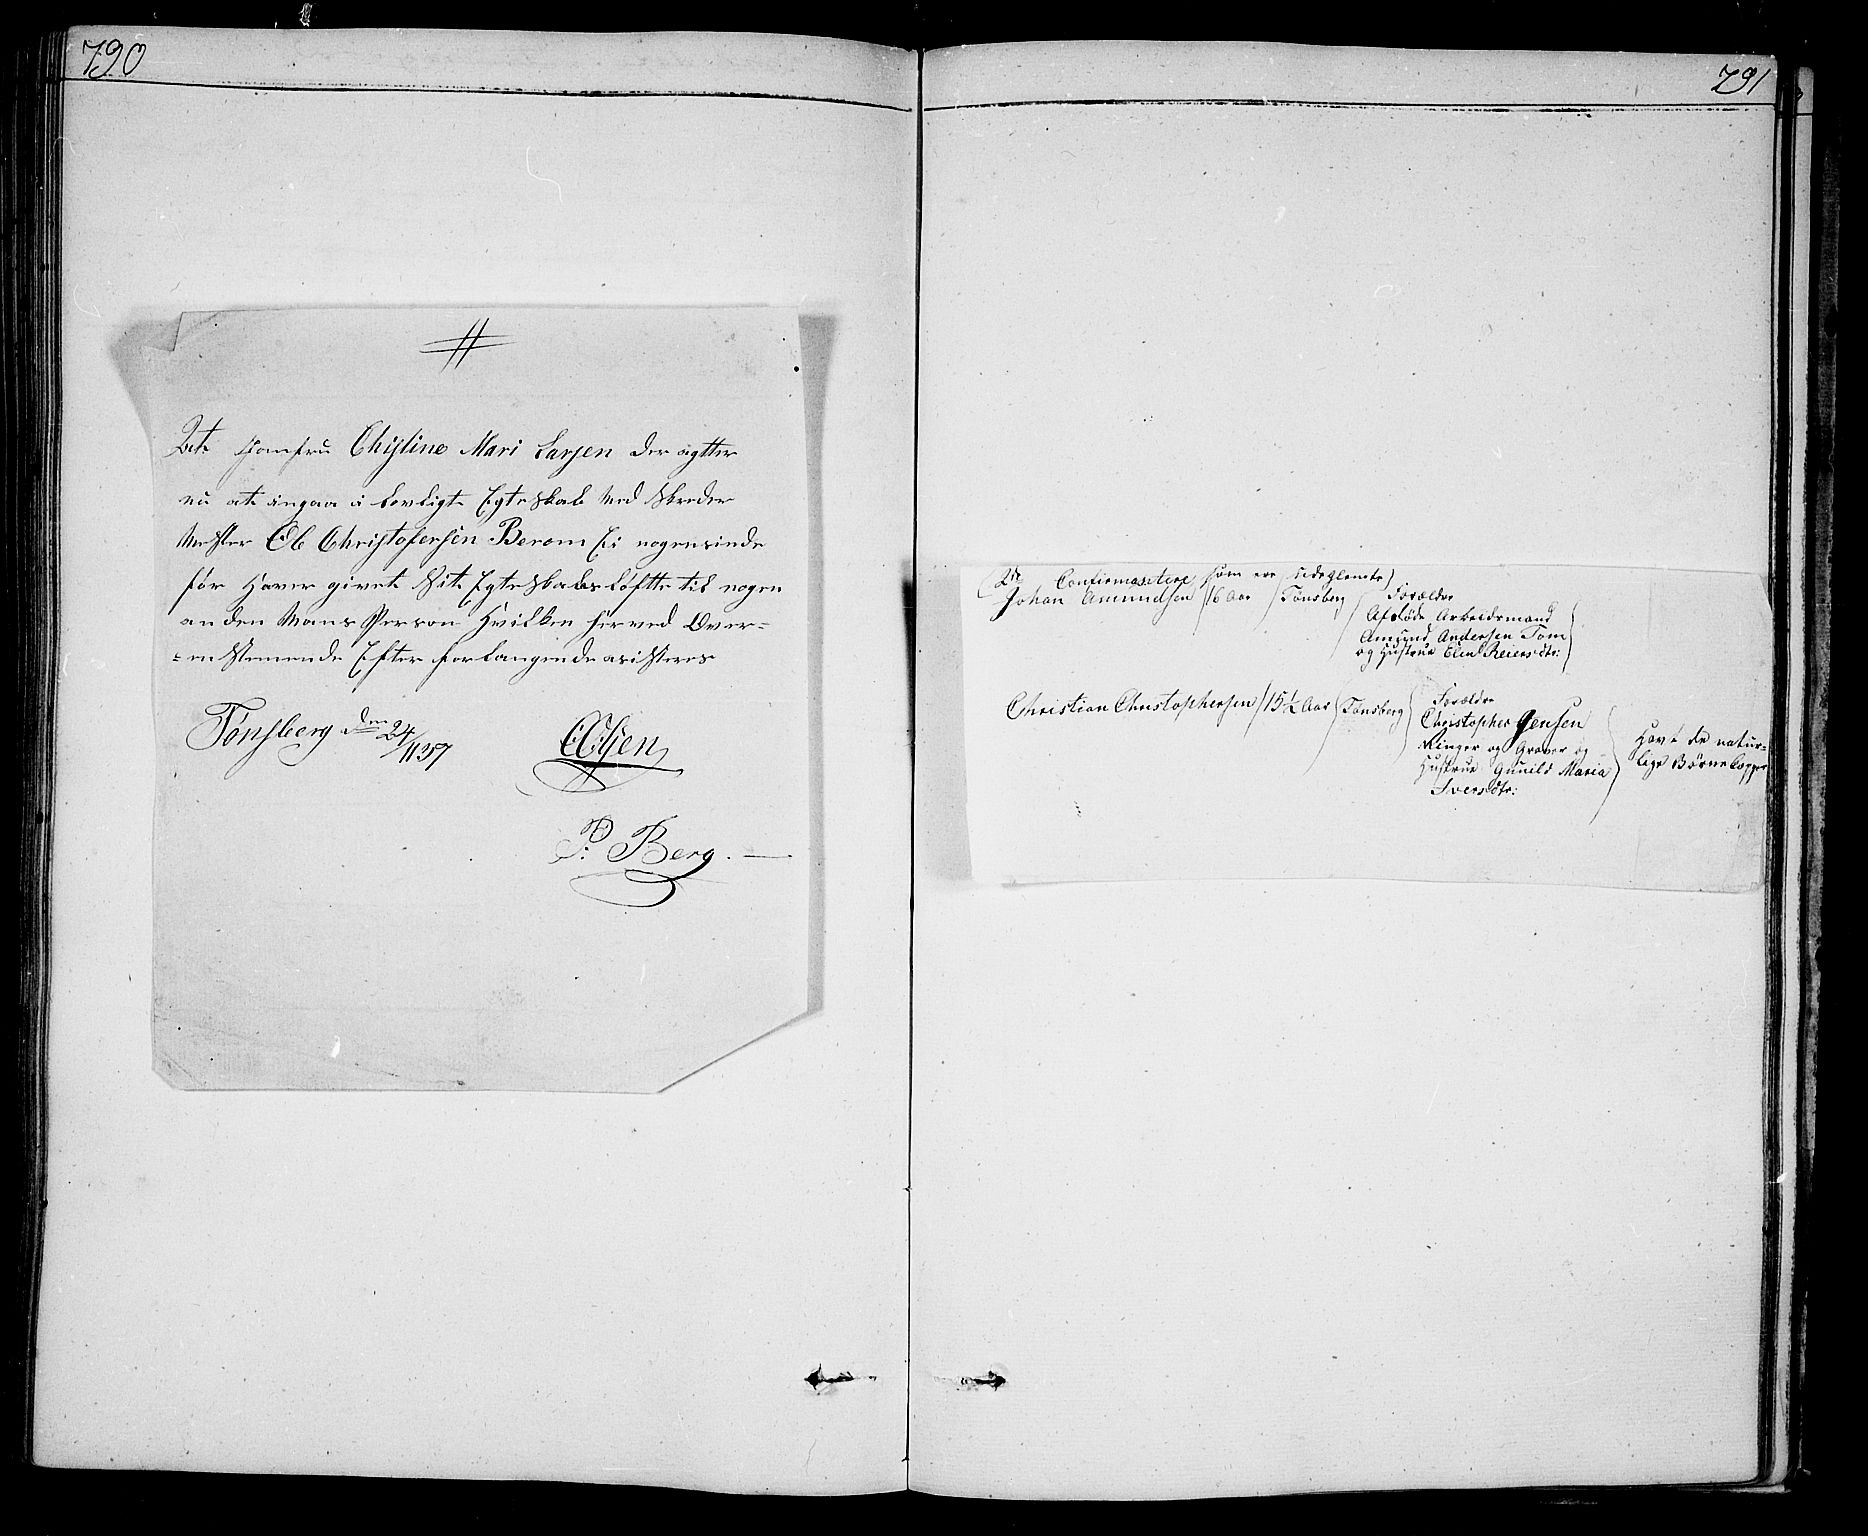 790
At Jomfru Chistine Mari Larsen der agtter
nu at ingaa i Lovligt Egteskab Med Skreder
Mester Ole Christofersen Berom Ei nogensinde
før Haver givet Sit Egteskabs Løftte til nogen
anden Mans Person Hvilken herved Over-
=en Stemende Efter forlangende atisteres
Tønsberg den 24/11 37
P. Berg.
791
2de Confirmantere som ere udeglemte)
Johan Amundsen / 16 Aar / Tønsberg / Forældre
Afdøde Arbeidsmand
Amund Andersen Tom
og Hustrue Elen Reiersdtr:
Christian Christophersen / 15 1/2 Aar / Tønsberg / Forældre
Christopher Jensen
Ringer og Graver og
Hustrue Gunild Maria
Iversdtr:
Havt de natur=
lige Børnekopper